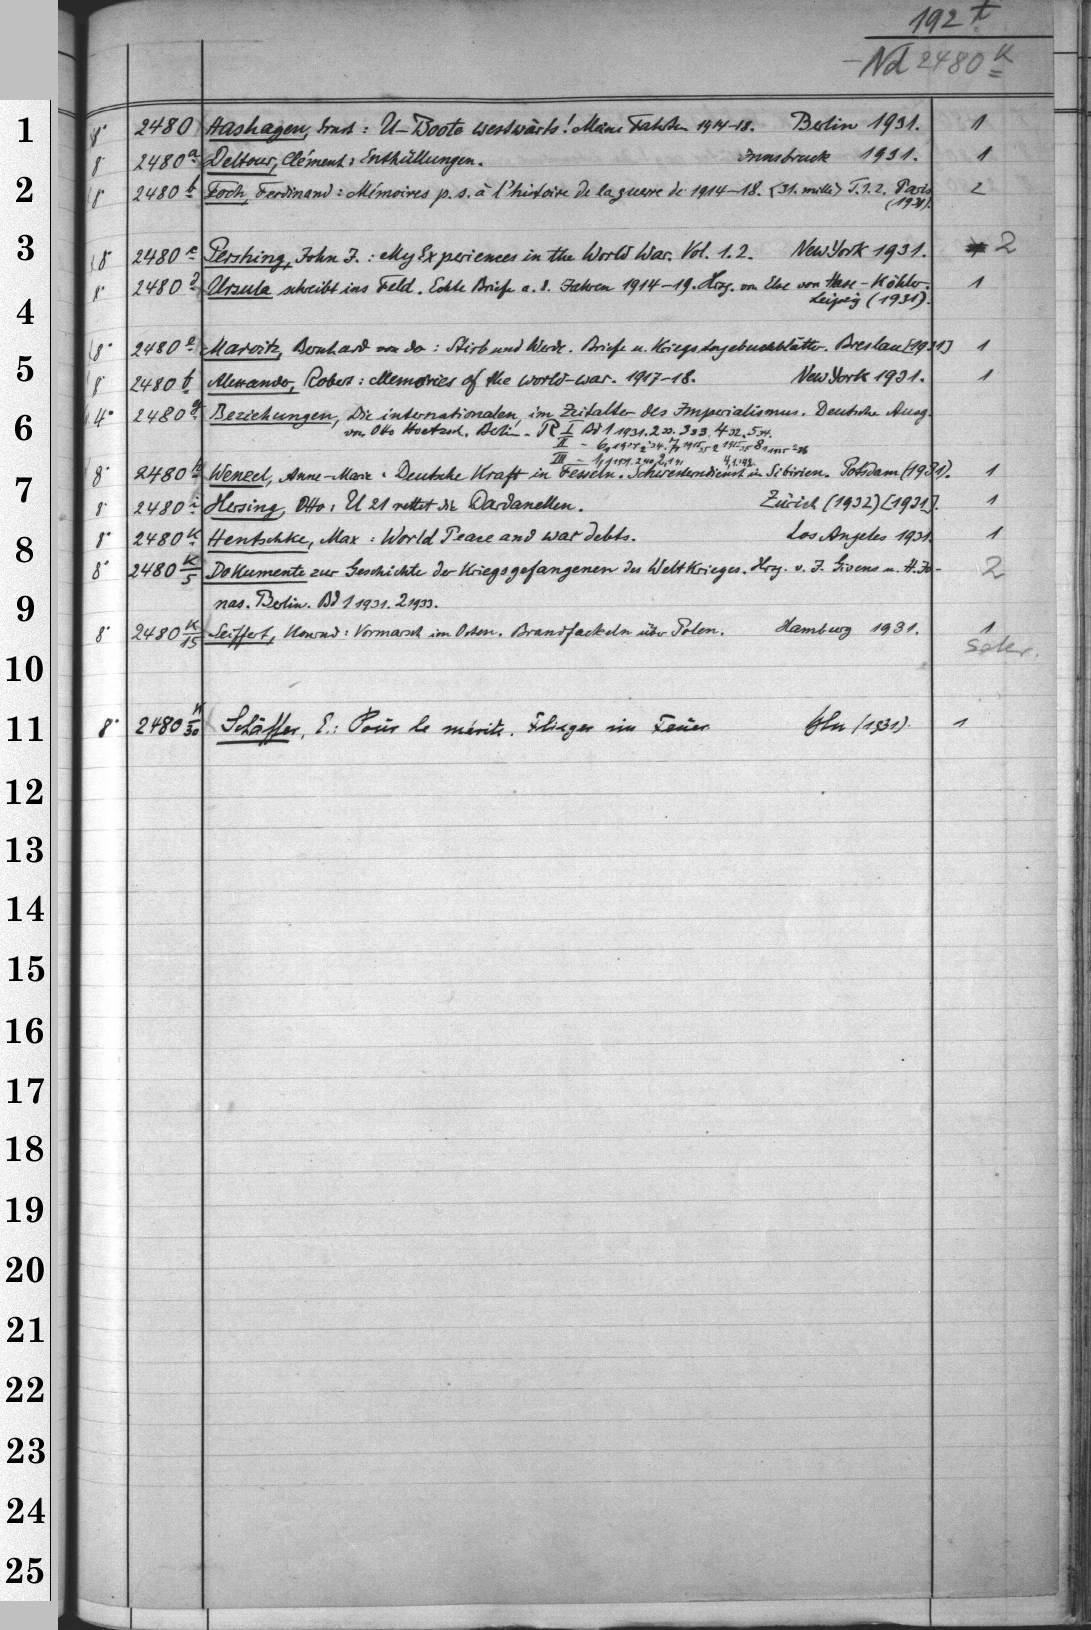 192 t
Nd 2480 k
1 8° 2480 Hashagen, Ernst: U-Boote westwärts! Meine Fahrten 1914-18. Berlin 1931. 1
8° 2480 a Deltour, Clément: Enthüllungen. Innsbruck 1931. 1
2 8° 2480 b Foch, Ferdinand: Mémoires p. s. à l'histoire de la guerre de 1914-18. (31. mille) T. 1.2. Paris 2
(1931).
3 8° 2480 c Pershing, John J.: My Experiences in the World War. Vol. 1. 2. New York 1931. 2
8° 2480 d Ursula schreibt ins Feld. Echte Briefe a. d. Jahren 1914-19. Hrg. von Else von Hase-Köhler. 1
4 Leipzig (1931).
8° 2480 e Marwitz, Bernhard von der: Stirb und Werde. Briefe u. Kriegstagebuchblätter. Breslau [1931] 1
5 8° 2480 f Alexander, Robert: Memories of the world-war. 1917-18. New York 1931. 1
6 4° 2480 g Beziehungen, Die internationalen, im Zeitalter des Imperialismus. Deutsche Ausg.
von Otto Hoetzsch. Berlin. R I Bd 1 1931. 2 33. 3 33. 4 32. 5 34.
II - 6,1
III - 1,1
8° 2480 h Wenzel, Anne-Marie: Deutsche Kraft in Fesseln. Schwesterndienst in Sibirien. Potsdam (1931). 1
7 8° 2480 i Hersing, Otto: U 21 rettet die Dardanellen. Zürich (1932) [1931]. 1
8 8° 2480 k Hentschke, Max: World Peace and war debts. Los Angeles 1931. 1
8° 2480 k/5 Dokumente zur Geschichte der Kriegsgefangenen des Weltkrieges. Hrg. v. J. Givens u. H. Jo- 2
9 nas. Berlin. Bd 1 1931. 2 1933.
8° 2480 k/15 Seiffert, Konrad: Vormarsch im Osten. Brandfackeln über Polen. Hamburg 1931. 1
10
11 8° 2480 k/30 Schäffer, E.: Pour le mérite. Flieger im Feuer (1931). 1
12
13
14
15
16
17
18
19
20
21
22
23
24
25